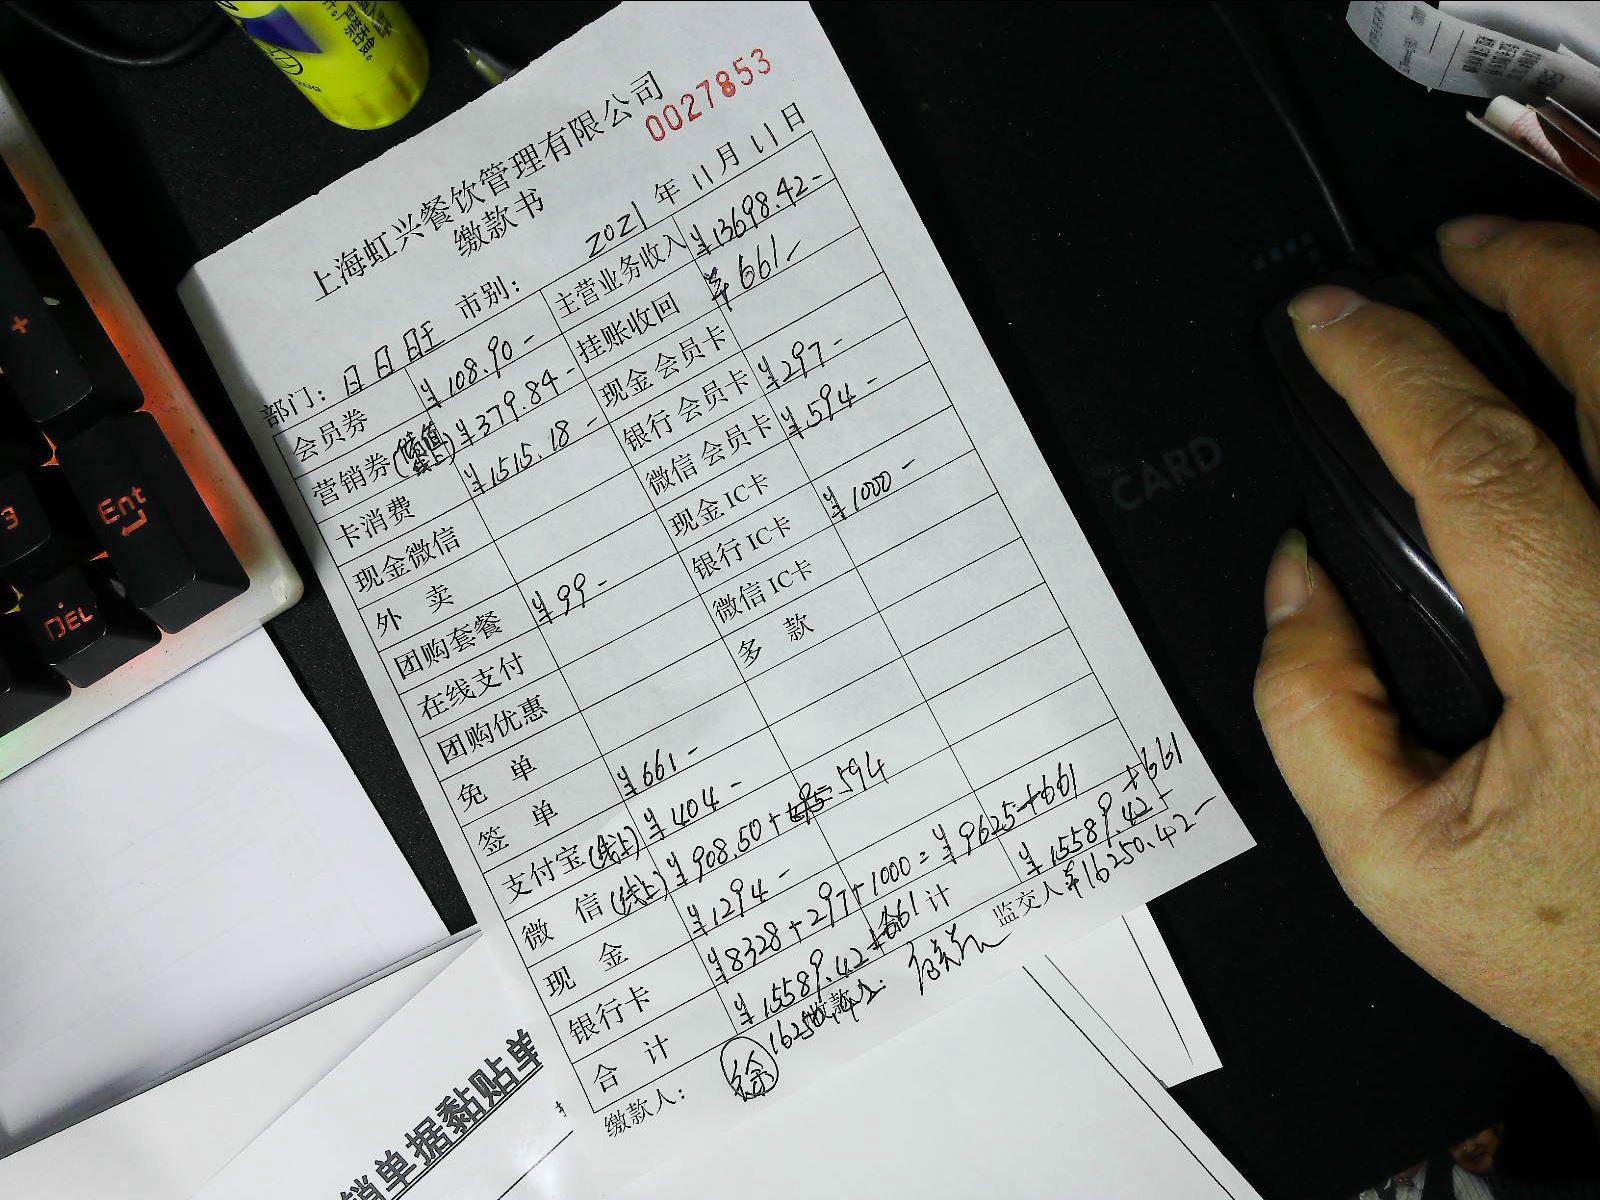 上海虹兴餐饮管理有限公司
0027853
缴款书
部门：日日旺 市别： 2021年11月11日
会员券 ¥108.90- 主营业务收入 ¥13698.42-
营销券(储值线上) ¥379.84- 挂账收回 ¥661-
卡消费 ¥1515.18- 现金会员卡
现金微信 银行会员卡 ¥297-
外 卖 微信会员卡 ¥594-
团购套餐 ¥99- 现金IC卡
在线支付 银行IC卡 ¥1000-
团购优惠 微信IC卡
免 单 多 款
签 单 ¥661-
支付宝(线上) ¥404-
微 信(线上) ¥908.50+594
现 金 ¥1294-
银行卡 ¥8328+297+1000=¥9625+661
合 计 ¥15589.42+661 合 计 ¥15589.42+661
16250.42 ¥16250.42-
缴款人： 徐 收款人： 监交人
+
3
Ent
DEL
CARD
销单据黏贴单